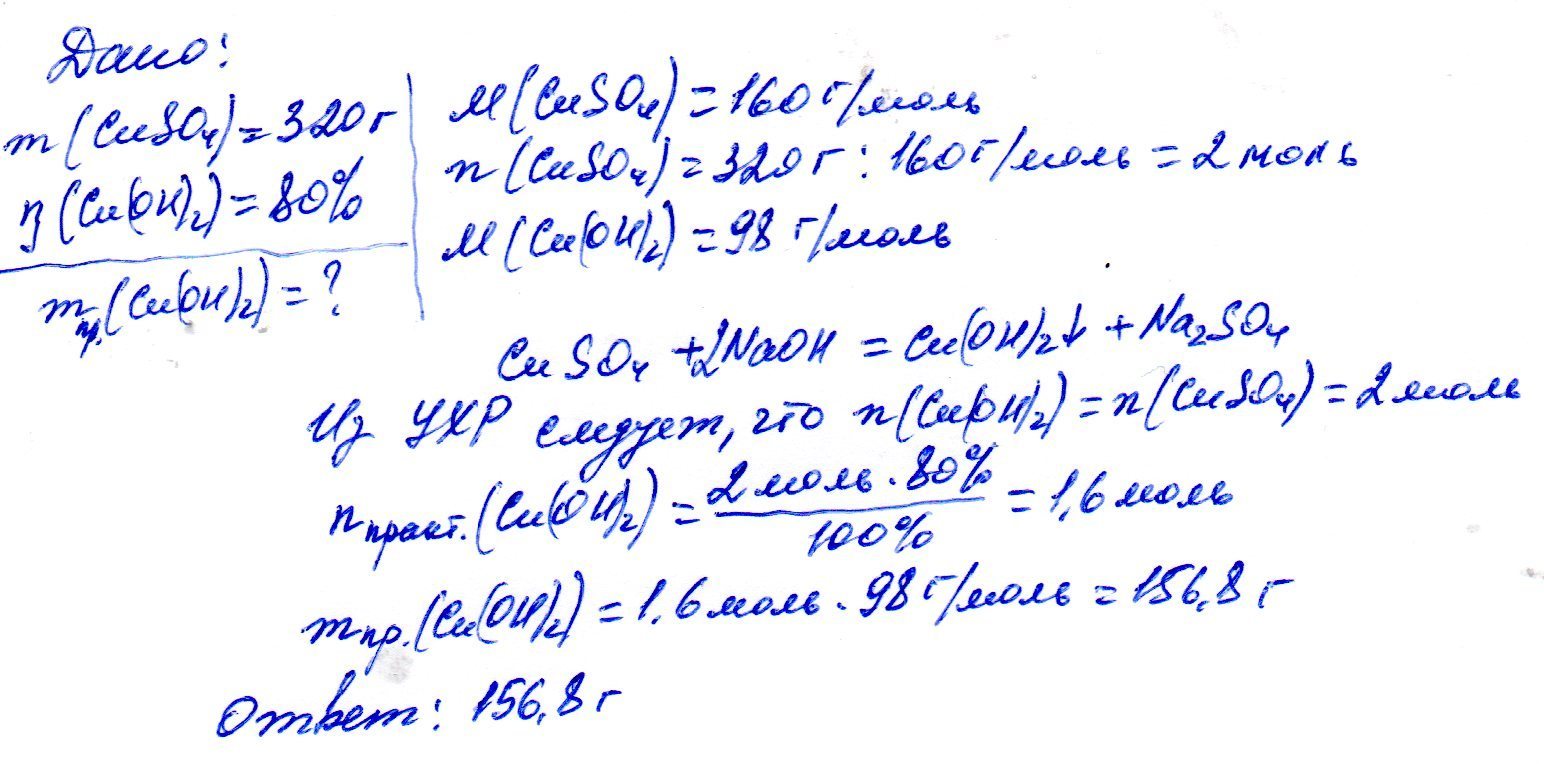 Дано:
m(CuSO₄)=320г
η(Cu(OH)₂)=80%
mпр.(Cu(OH)₂)=?
M(CuSO₄)=160г/моль
n(CuSO₄)=320г:160г/моль=2моль
M(Cu(OH)₂)=98г/моль
CuSO₄+2NaOH=Cu(OH)₂↓+Na₂SO₄
Из УХР следует, что n(Cu(OH)₂)=n(CuSO₄)=2моль
nпракт.(Cu(OH)₂)=2моль·80%/100%=1,6моль
mпр.(Cu(OH)₂)=1,6моль·98г/моль=156,8г
Ответ: 156,8г